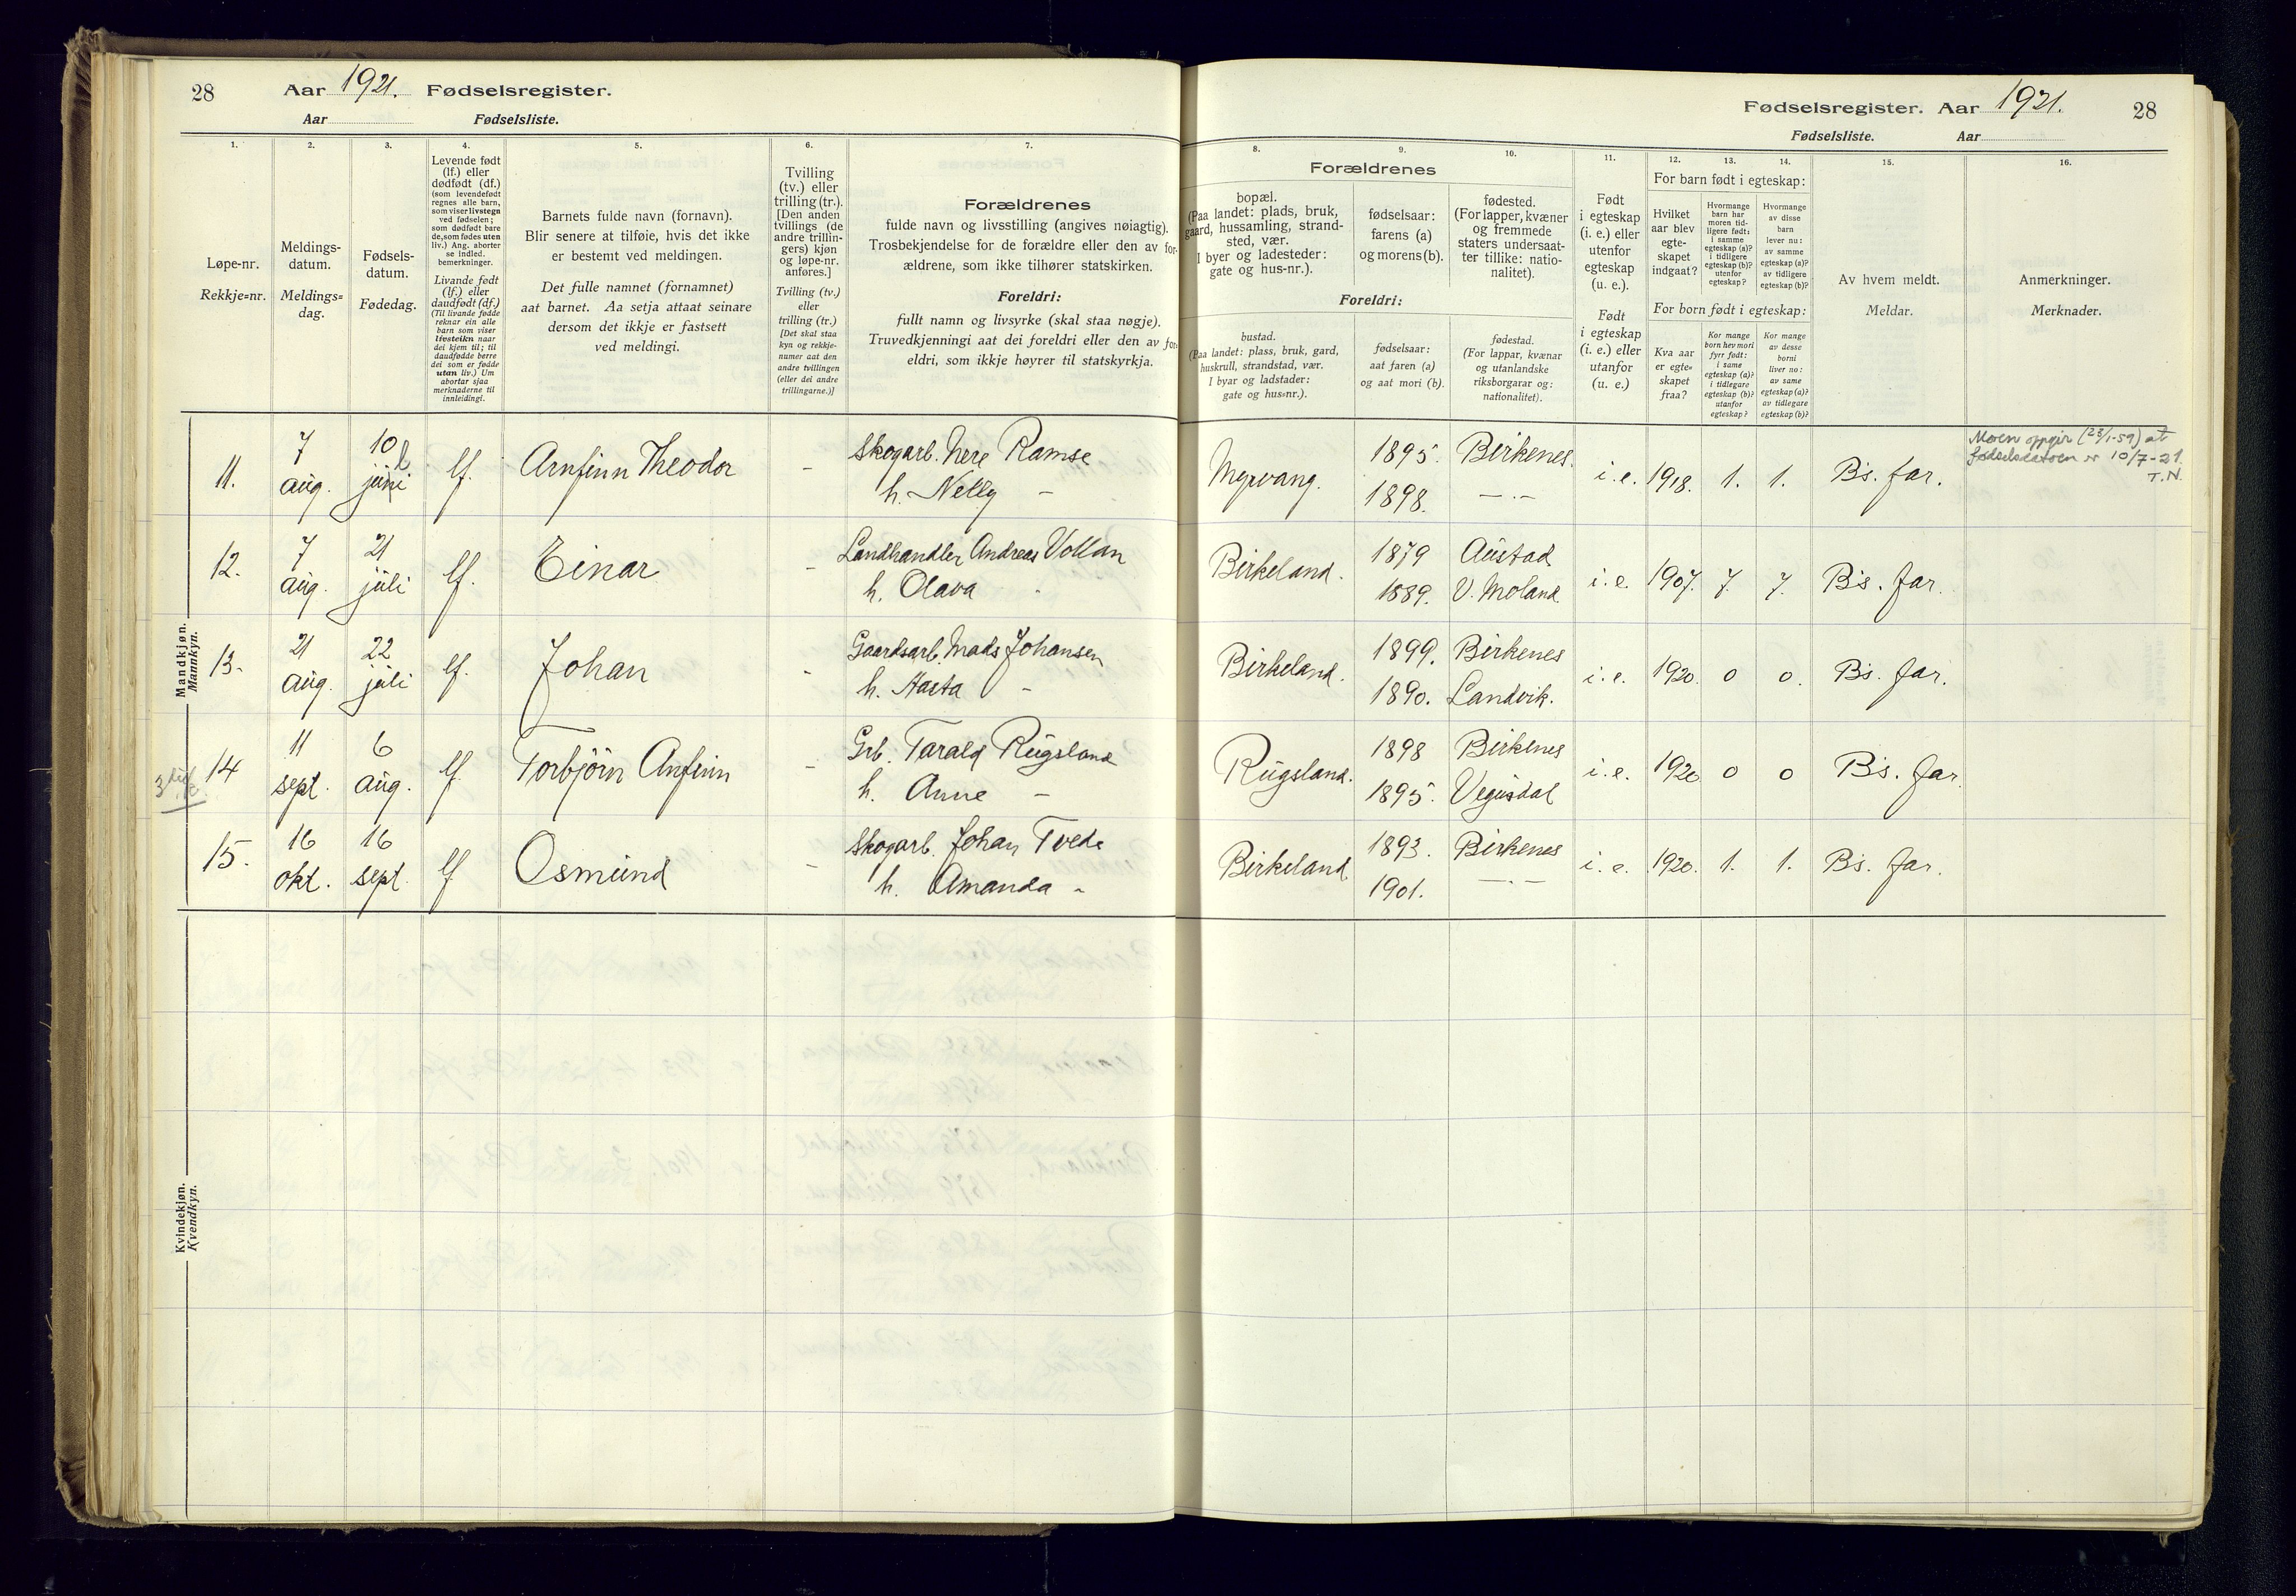 28 Aar 1921. Fødselsregister.
Aar Fødselsliste.
Fødselsregister. Aar 1921. 28
Fødselsliste. Aar
1. 2. 3. 4. 5. 6. 7.
Løpe-nr.
Rekkje=nr.
Meldings-
datum.
Meldings=
dag.
Fødsels-
datum.
Fødedag.
Levende født
(lf.) eller
dødfødt (df.)
(som levendefødt
regnes alle barn,
som viser livstegn
ved fødselen;
som dødfødt bare
de, som fødes uten
liv.) Ang. aborter
se indled.
bemerkninger.
Livande født
(lf.) eller
daudfødt (df.)
(Til livande fødde
reknar ein alle
barn som viser
livsteikn naar
dei kjem til; til
daudfødde berre
dei som er fødde
utan liv.) Um
abortar sjaa
merknaderne til
innleidingi.
Barnets fulde navn (fornavn).
Blir senere at tilføie, hvis det ikke
er bestemt ved meldingen.
Det fulle namnet (fornamnet)
aat barnet. Aa setja attaat seinare
dersom det ikkje er fastsett
ved meldingi.
Tvilling
(tv.) eller
trilling (tr.).
[Den anden
tvillings (de
andre trillin-
gers) kjøn
og løpe-nr.
anføres.]
Tvilling (tv.)
eller
trilling (tr.)
[Det skal staa
kyn og rekkje-
numer aat den
andre tvillingen
(eller dei andre
trillingarne.)]
Forældrenes
fulde navn og livsstilling (angives nøiagtig).
Trosbekjendelse for de forældre eller den av for-
ældrene, som ikke tilhører statskirken.
Foreldri:
fullt namn og livsyrke (skal staa nøgje).
Truvedkjenningi aat dei foreldri eller den av for-
eldri, som ikkje høyrer til statskyrkja.
8. 9. 10. 11. 12. 13. 14. 15. 16.
Forældrenes
bopæl.
(Paa landet: plads, bruk,
gaard, hussamling, strand-
sted, vær.
I byer og ladesteder:
gate og hus-nr.).
fødselsaar:
farens (a)
og morens (b).
fødested.
(For lapper, kvæner
og fremmede
staters undersaat-
ter tillike: natio-
nalitet).
Foreldri:
bustad.
(Paa landet: plass, bruk, gard,
huskrull, strandstad, vær.
I byar og ladstader:
gate og hus=nr.).
fødselsaar:
aat faren (a)
og aat mori (b).
fødestad.
(For lappar, kvænar
og utanlandske
riksborgarar og:
nationalitet).
Født
i egteskap
(i. e.) eller
utenfor
egteskap
(u. e.).
Født
i egteskap
(i. e.) eller
utanfor
(u. e.)
For barn født i egteskap:
Hvilket
aar blev
egte-
skapet
indgaat?
Hvormange
barn har
moren tid-
ligere født:
i samme
egteskap (a)?
i tidligere
egteskap (b)?
utenfor
egteskap?
Hvormange
av disse
barn
lever nu:
av samme
egteskap (a)?
av tidligere
egteskap (b)?
For born født i egteskap:
Kva aar
er egte=
skapet
fraa?
Kor mange
born hev mori
fyrr født:
i same
egteskap (a)?
i tidlegare
egteskap (b)?
utanfor
egteskap?
Kor mange
av desse
borni
liver no:
av same
egteskap (a)?
av tidlegare
egteskap (b)?
Av hvem meldt.
Meldar.
Anmerkninger.
Merknader.
Mandkjøn.
Mannkyn.
11. 7 aug. 10 juni l lf. Arnfinn Theodor - Skogarb. Nere Ramse
h. Nelly -
Myrvang. 1895. Birkenes. i. e. 1918. 1. 1. B's. far.
1898. -.-
Moen oppgir (23/1-59) at
fødselsdatoen er 10/7-21.
T.N.
12. 7 aug. 21 juli lf. Einar - Landhandler Andreas Vollan
h. Olava -
Birkeland. 1879 Austad i. e. 1907. 7. 7. B's. far.
1889. V. Moland.
13. 21 aug. 22 juli lf. Johan - Gaardsarb. Mads Johansen
h. Aasta -
Birkeland. 1899. Birkenes i. e. 1920. 0 0. B's. far.
1890. Landvik.
14 11 sept. 6 aug. lf Torbjörn Anfinn - Grb. Tarald Rugsland
h. Anne -
Rugsland. 1898 Birkenes i. e. 1920 0 0 B's. far.
1895. Vegusdal
15. 16 okt. 16 sept. lf Osmund - Skogarb. Johan Tvede
h. Amanda -
Birkeland. 1893. Birkenes i. e. 1920. 1. 1. B's. far.
1901. -.-
Kvindekjøn.
Kvendkyn.